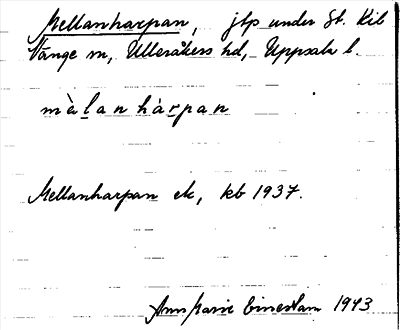 Mellanharpan, jtp under St. Kil
Vänge sn, Ulleråkers hd, Uppsala l.
mèlan hàrpan
Mellanharpan ek, kb 1937.
Ann Marie 1943